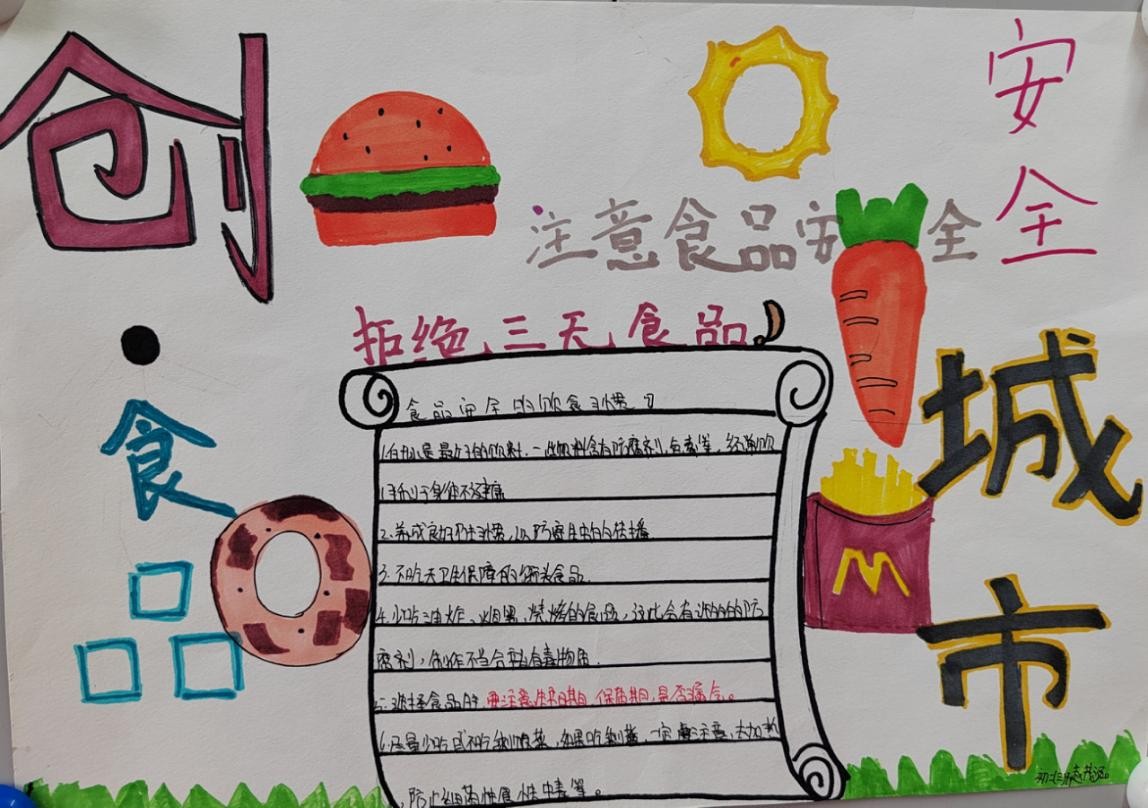 创
食品
安全
城市
注意食品安全
拒绝三无食品
食品安全的饮食习惯
1.白开水是最好的饮料,一些饮料含有防腐剂、色素等,经常饮
不利于身体健康
2.养成良好 习惯,以防 传播
3.不吃无卫生保障的街头食品.
4.少吃油炸、烟熏、烧烤的食品,这些 的防
腐剂,制作不当会产生有毒物质.
选择食品时 要注意生产日期、保质期、是否漏气。
6.尽量少吃或不吃剩饭菜,如果吃剩菜,一定要注意,去加热
,防止细菌性食 中毒等。
M